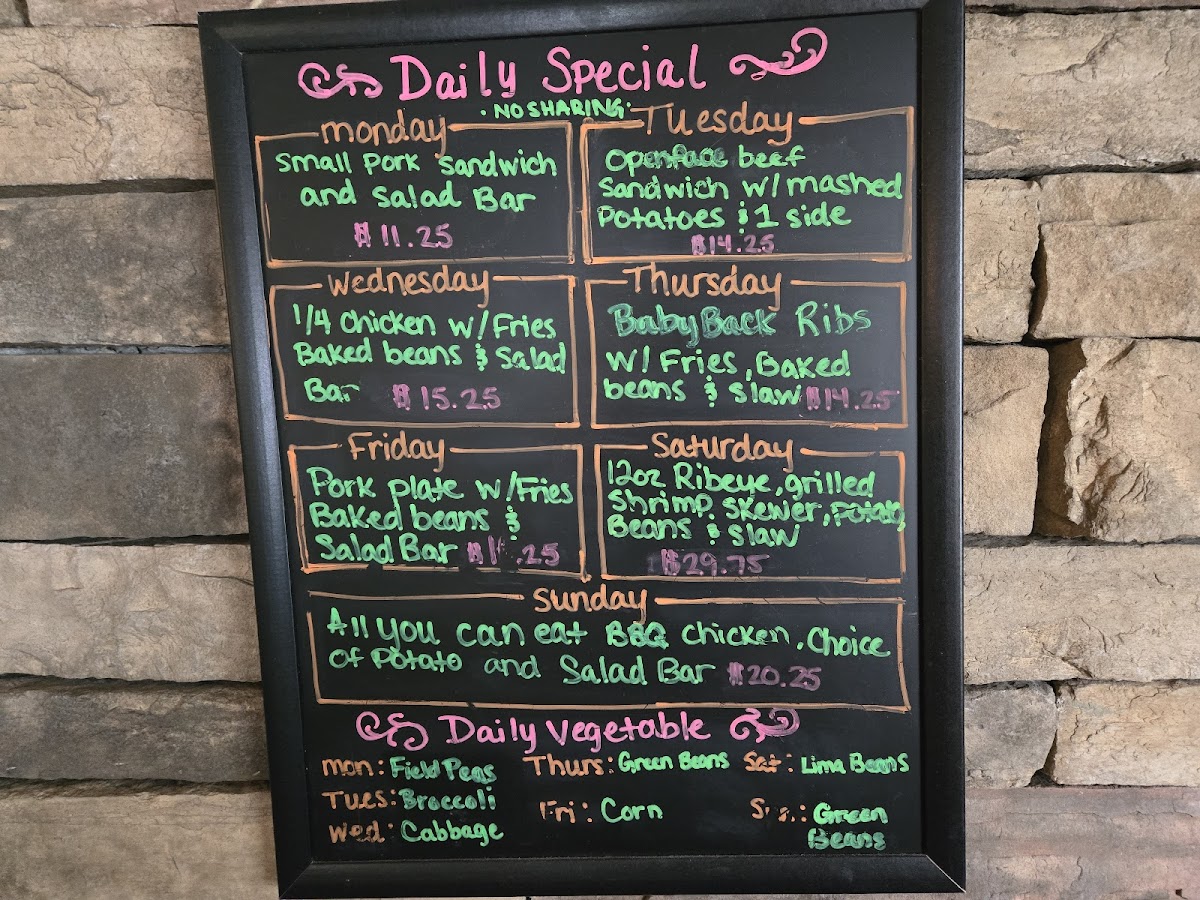 Daily Special
• NO SHARING •
monday
Small Pork Sandwich
and Salad Bar
$11.25
Tuesday
Openface beef
Sandwich w/ mashed
Potatoes & 1 side
$14.25
Wednesday
1/4 Chicken w/ Fries
Baked beans & Salad
Bar $15.25
Thursday
Baby Back Ribs
w/ Fries, Baked
beans & slaw $14.25
Friday
Pork plate w/ Fries
Baked beans &
Salad Bar
Saturday
12oz Ribeye, grilled
Shrimp skewer, Potato,
Beans & slaw
$29.75
Sunday
All you can eat BBQ Chicken, Choice
of Potato and Salad Bar $20.25
Daily Vegetable
mon: Field Peas
Tues: Broccoli
Wed: Cabbage
Thurs: Green Beans
Fri: Corn
Sat: Lima Beans
Sun.: Green
Beans